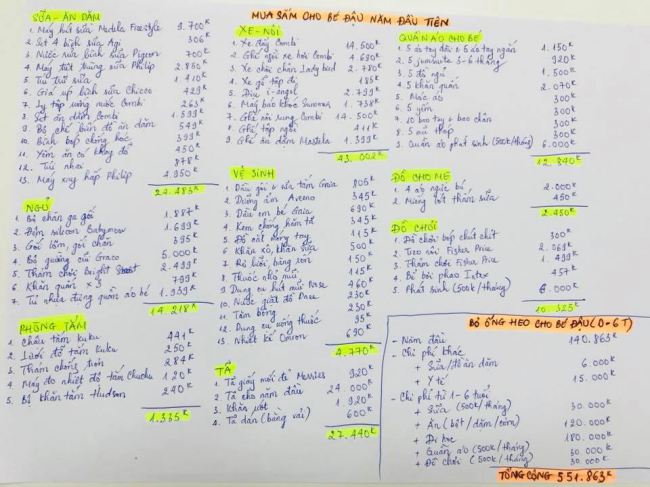 MUA SẮM CHO BÉ ĐẬU NĂM ĐẦU TIÊN
SỮA - ĂN DẶM
1. Máy hút sữa Medela Freestyle 9.700K
2. Set 4 bình sữa Agi 306K
3. Nước rửa bình sữa Pigeon 700K
4. Máy tiệt trùng sữa Philip 2.850K
5. Túi trữ sữa 1.410K
6. Giá úp bình sữa Chicco 429K
7. Ly tập uống nước Combi 263K
8. Set ăn dặm Combi 1.599K
9. Bộ chế biến đồ ăn dặm 549K
10. Bình bóp chống hóc 399K
11. Yếm ăn cơ không đổ 450K
12. Túi nhai 878K
13. Máy xay hấp Philip 4.950K
24.483K
NGỦ
1. Bộ chăn ga gối 1.887K
2. Đệm silicon Babymoov 1.699K
3. Gối lõm, gối chặn 395K
4. Bộ giường cũi Graco 5.000K
5. Thảm chơi bright 2.499K
6. Khăn quấn x 3 799K
7. Tủ nhựa đựng quần áo bé 1.939K
14.218K
PHÒNG TẮM
1. Chậu tắm kuku 441K
2. Lưới đỡ tắm kuku 250K
3. Thảm chống trơn 284K
4. Máy đo nhiệt độ tắm Chuchu 120K
5. Bộ khăn tắm Hudson 240K
1.335K
XE - NÔI
1. Xe đẩy Combi 14.500K
2. Ghế ngồi xe hơi Combi 4.690K
3. Xe chòi chân Lady bird 2.780K
4. Xe gỗ tập đi 185K
5. Địu i-angel 2.799K
6. Máy báo khóc 1.738K
7. Ghế nôi rung Combi 14.500K
8. Ghế tập ngồi 411K
9. Ghế ăn dặm Mastela 1.399K
43.002K
VỆ SINH
1. Dầu gội & sữa tắm Gaia 805K
2. Dưỡng ẩm Aveno 345K
3. Dầu em bé Gaia 690K
4. Kem chống hăm tã 345K
5. Đồ cắt móng tay 115K
6. Khăn xô, khăn sữa 500K
7. Rơ lưỡi, bông 150K
8. Thuốc nhỏ mũi 115K
9. Dụng cụ hút mũi Nose 460K
10. Nước giặt đồ Dnee 230K
11. Tăm bông 230K
12. Dụng cụ uống thuốc 95K
13. Nhiệt kế Omron 690K
4.770K
TÃ
1. Tã giấy mới đẻ Merries 920K
2. Tã cho năm đầu 24.000K
3. Khăn ướt 1.920K
4. Tã dán (bằng vải) 600K
27.440K
QUẦN ÁO CHO BÉ
1. 5 áo tay dài & 5 áo tay ngắn 1.150K
2. 5 jumsuite 3-6 tháng 920K
3. 5 đồ ngủ 1.500K
4. 5 khăn quấn 2.070K
5. Móc áo 300K
6. 5 yếm 300K
7. 10 bao tay & bao chân 300K
8. 5 mũ thóp 300K
9. Quần áo phát sinh (500K/tháng) 6.000K
12.840K
ĐỒ CHO MẸ
1. 4 áo ngực bú 2.000K
2. Miếng lót thấm sữa 450K
2.450K
ĐỒ CHƠI
1. Đồ chơi bóp chút chít 300K
2. Treo nôi Fisher Price 2.069K
3. Thảm chơi Fisher Price 1.499K
4. Bể bơi phao Intex 457K
5. Phát sinh (500K/tháng) 6.000K
10.325K
BỎ ỐNG HEO CHO BÉ ĐẬU (0-6T)
- Năm đầu 140.863K
- Chi phí khác
+ Sữa/Ăn dặm 6.000K
+ Y tế 15.000K
- Chi phí từ 1-6 tuổi
+ Sữa (500K/tháng) 30.000K
+ Ăn (bột/dặm/cơm) 120.000K
+ Đi học 180.000K
+ Quần áo (500K/tháng) 30.000K
+ Đồ chơi (500K/tháng) 30.000K
TỔNG CỘNG 551.863K